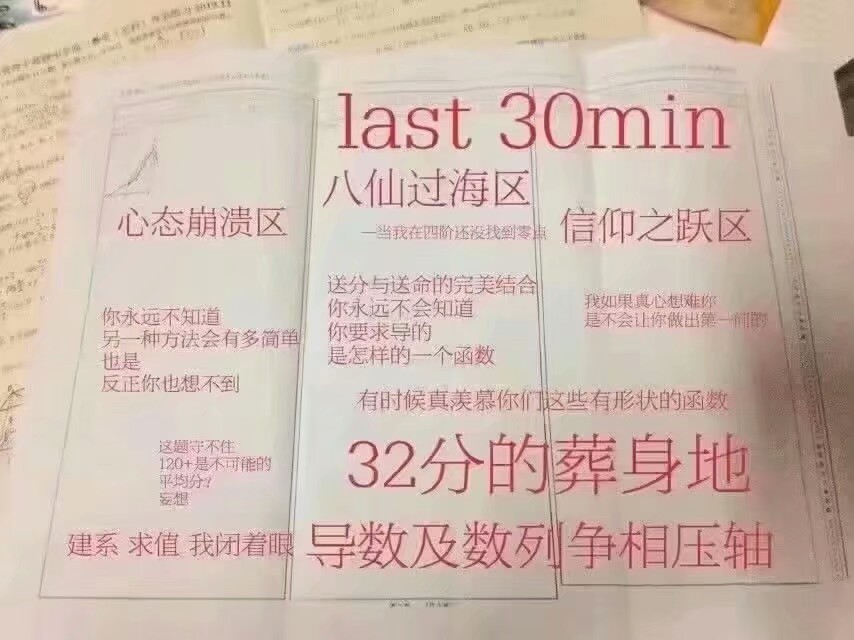 last 30min
八仙过海区
心态崩溃区
—当我在四阶还没找到零点
信仰之跃区
送分与送命的完美结合
你永远不会知道
你要求导的
是怎样的一个函数
我如果真心想难你
是不会让你做出第一问的
你永远不知道
另一种方法会有多简单
也是
反正你也想不到
有时候真羡慕你们这些有形状的函数
这题守不住
120+是不可能的
平均分?
妄想
32分的葬身地
建系 求值 我闭着眼
导数及数列争相压轴